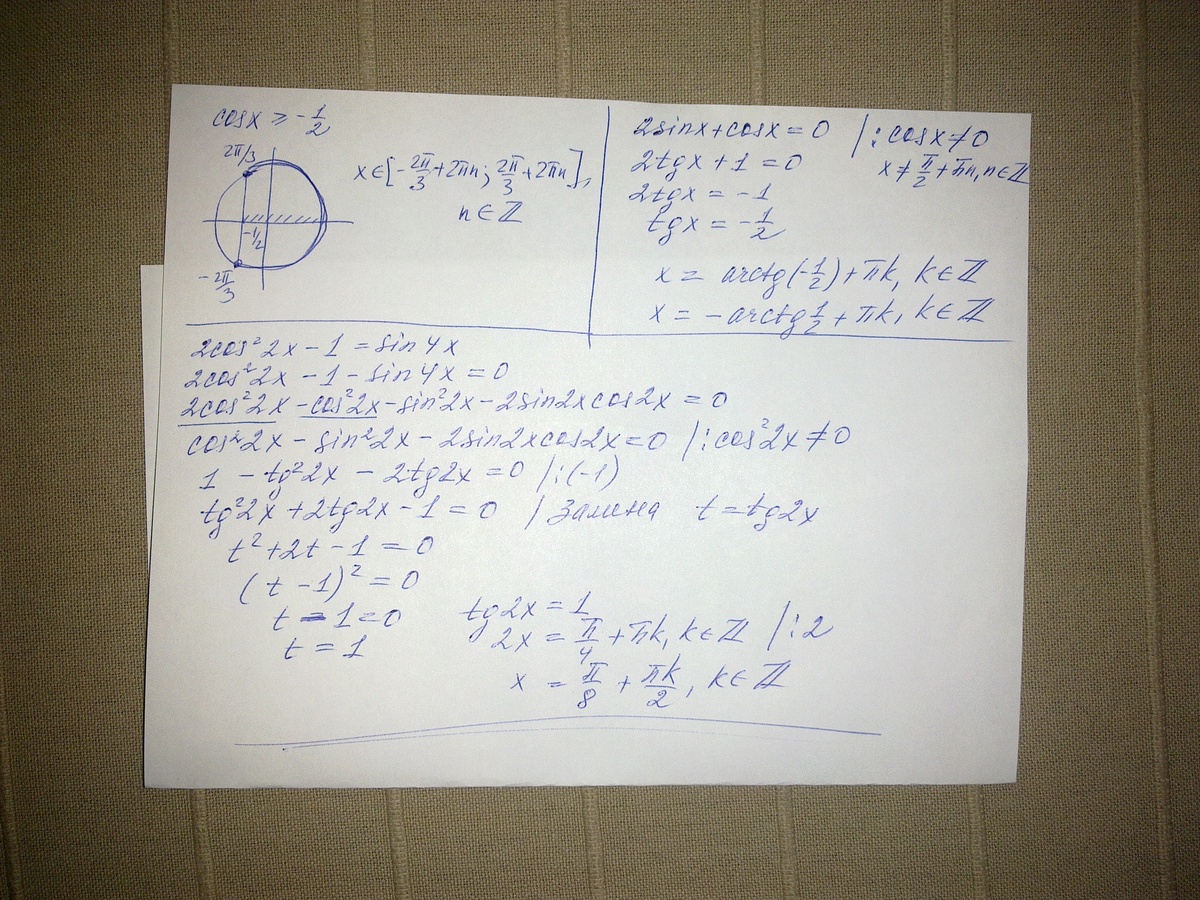 cosx ≥ -1/2
2π/3
x∈[-2π/3+2πn; 2π/3+2πn],
n∈ℤ
-1/2
-2π/3
2sinx+cosx=0 /:cosx≠0
2tgx+1=0 x≠π/2+πn, n∈ℤ
2tgx=-1
tgx=-1/2
x = arctg(-1/2)+πk, k∈ℤ
x = -arctg1/2+πk, k∈ℤ
2cos²2x-1=sin4x
2cos²2x-1-sin4x=0
2cos²2x-cos²2x-sin²2x-2sin2xcos2x=0
cos²2x-sin²2x-2sin2xcos2x=0 /:cos²2x≠0
1-tg²2x-2tg2x=0 /:(-1)
tg²2x+2tg2x-1=0 / Замена t=tg2x
t²+2t-1=0
(t-1)²=0
t-1=0
t=1
tg2x=1
2x=π/4+πk, k∈ℤ /:2
x=π/8+πk/2, k∈ℤ